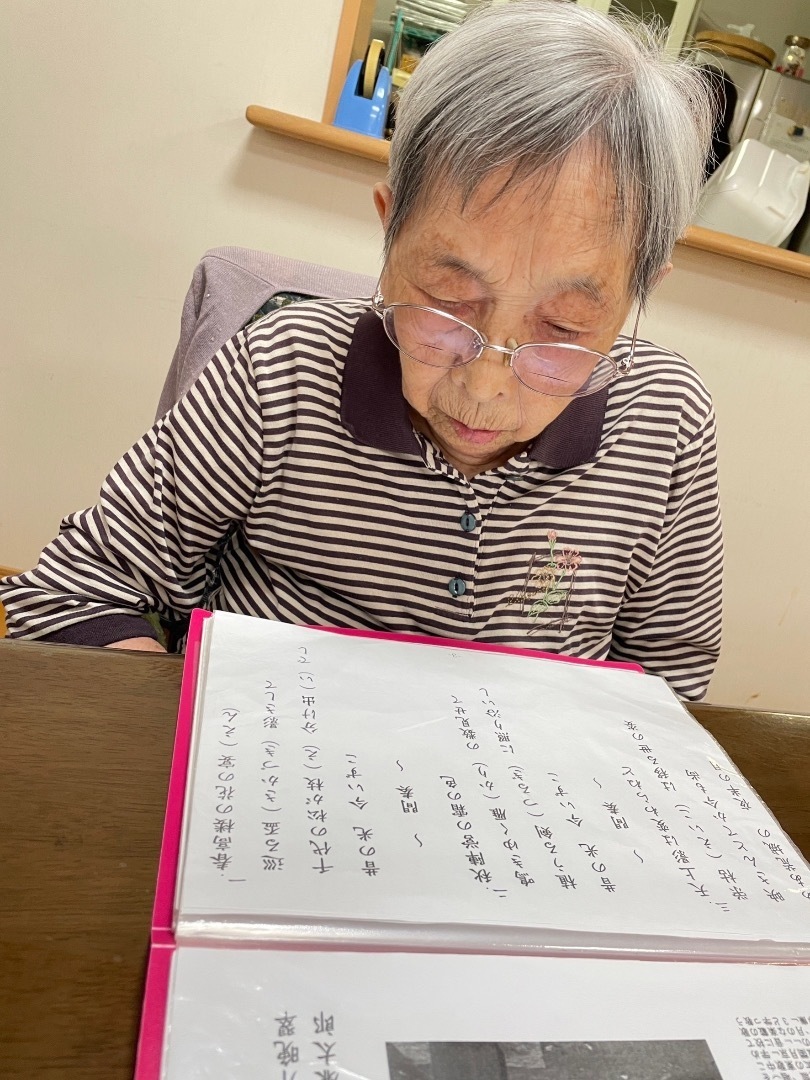 一春高楼の花の宴(えん)
巡る盃(さかづき)影さして
千代の松が枝(え)分け出(い)でし
昔の光 今いずこ
～ 間奏 ～
二.秋陣営の霜の色
鳴きゆく雁(かり)の数見せて
植うる剣(つるぎ)に照り沿いし
昔の光 今いずこ
～ 間奏 ～
三.天上影は変わらねど
栄枯(えいこ)は移る世の姿
映さんとてか今も尚
ああ荒城の 夜半の月
晩翠
太郎